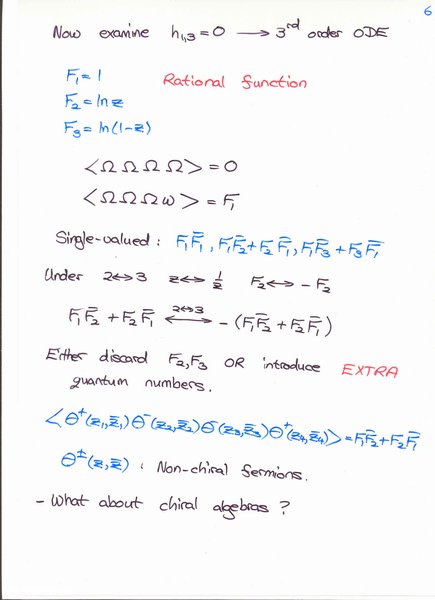 6
Now examine h₁,₃=0 → 3rd order ODE
F₁=1 Rational function
F₂=ln z
F₃=ln(1-z)
<Ω Ω Ω Ω> = 0
<Ω Ω Ω ω> = F₁
Single-valued: F₁F̄₁, F₁F̄₂+F₂F̄₁, F₁F̄₃+F₃F̄₁
Under 2↔3 z↔1/z F₂↔-F₂
F₁F̄₂+F₂F̄₁ ⟷ -(F₁F̄₂+F₂F̄₁)
2↔3
Either discard F₂,F₃ OR introduce EXTRA
quantum numbers.
<Θ⁺(z₁,z̄₁)Θ⁻(z₂,z̄₂)Θ⁻(z₃,z̄₃)Θ⁺(z₄,z̄₄)>=F₁F̄₂+F₂F̄₁
Θ±(z,z̄) : Non-chiral fermions.
- What about chiral algebras ?